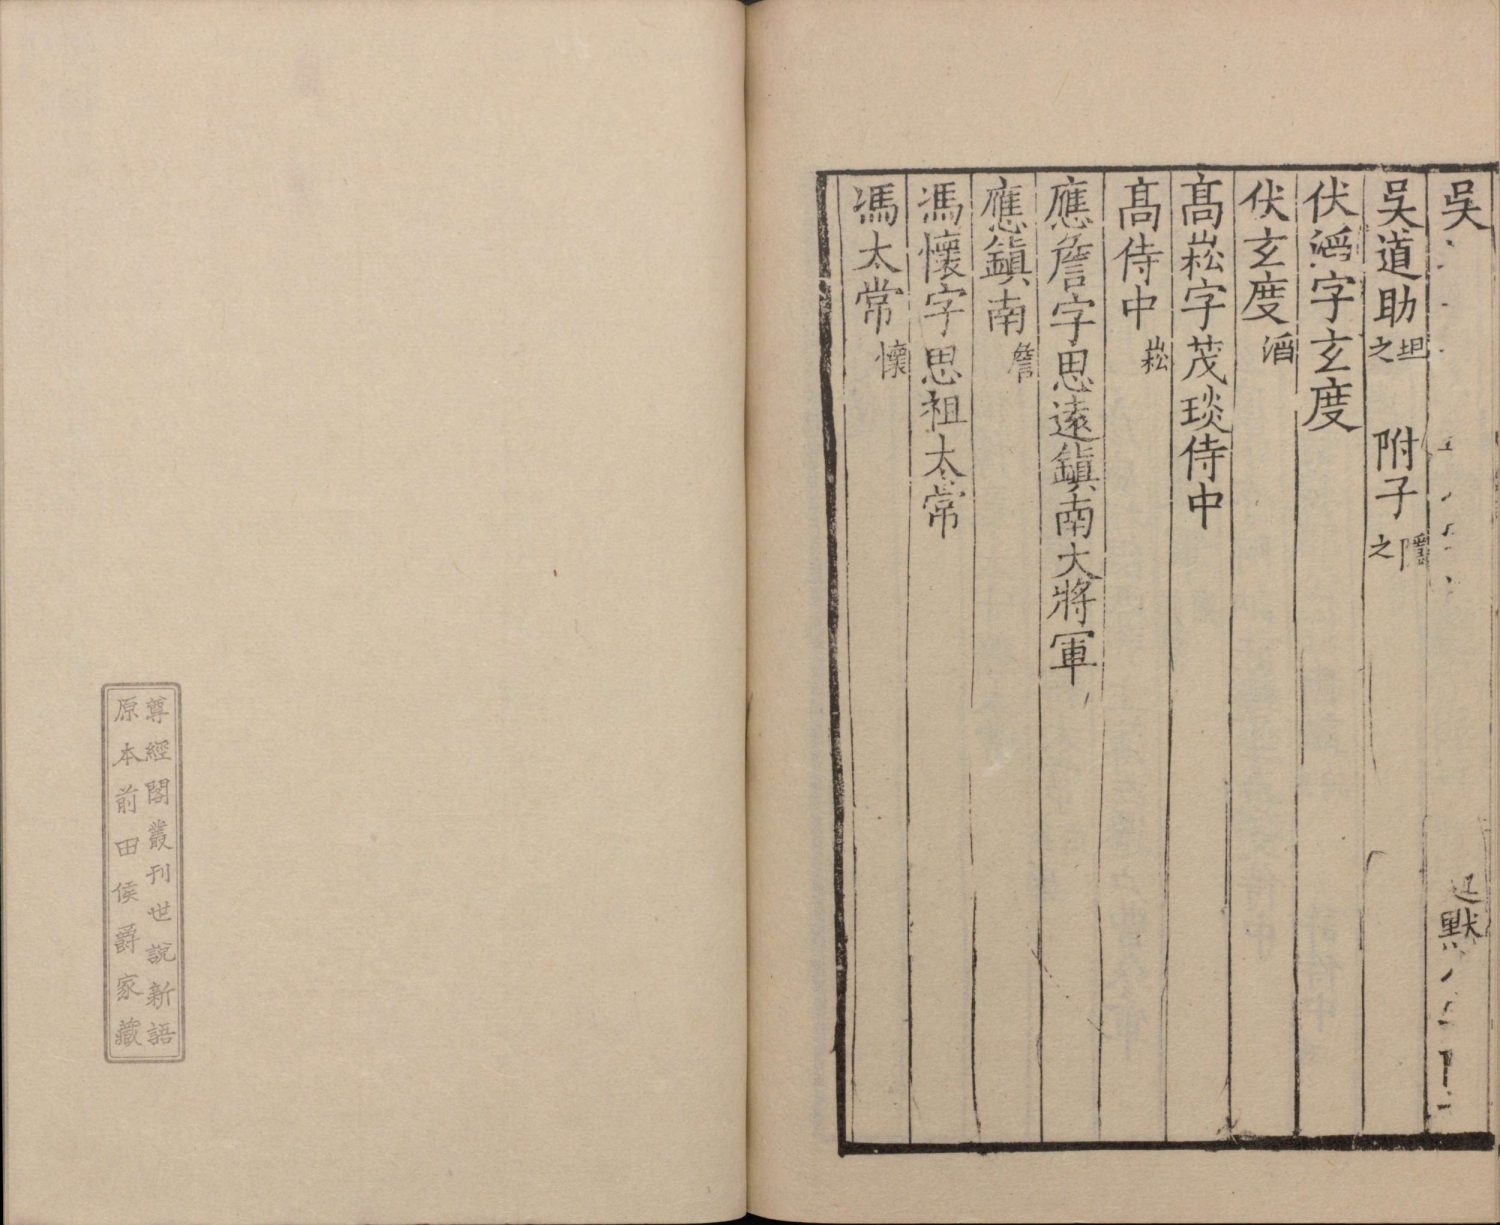 吳
默
吳道助坦之 附子隱之
伏滔字玄度
伏玄度滔
髙崧字茂琰侍中
髙侍中崧
應詹字思遠鎮南大將軍
應鎮南詹
馮懷字思祖太常
馮太常懷
尊經閣叢刊世說新語
原本前田侯爵家藏